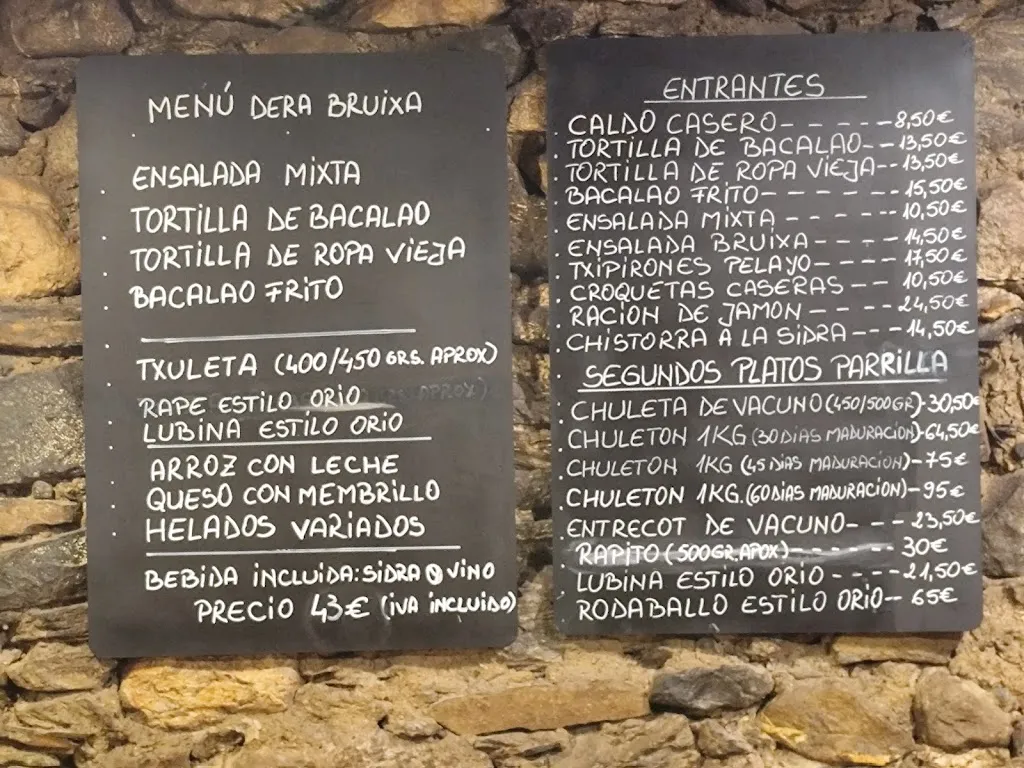 MENÚ DERA BRUIXA
ENSALADA MIXTA
TORTILLA DE BACALAO
TORTILLA DE ROPA VIEJA
BACALAO FRITO
TXULETA (400/450 GRS. APROX)
RAPE ESTILO ORIO
LUBINA ESTILO ORIO
ARROZ CON LECHE
QUESO CON MEMBRILLO
HELADOS VARIADOS
BEBIDA INCLUIDA: SIDRA O VINO
PRECIO 43€ (IVA INCLUIDO)
ENTRANTES
CALDO CASERO - - - - - - 8,50€
TORTILLA DE BACALAO - - 13,50€
TORTILLA DE ROPA VIEJA - - 13,50€
BACALAO FRITO - - - - - - 15,50€
ENSALADA MIXTA - - - - - 10,50€
ENSALADA BRUIXA - - - - 14,50€
TXIPIRONES PELAYO - - - - 17,50€
CROQUETAS CASERAS - - 10,50€
RACION DE JAMON - - - - 24,50€
CHISTORRA A LA SIDRA - - - 14,50€
SEGUNDOS PLATOS PARRILLA
CHULETA DE VACUNO (450/500GR) - 30,50€
CHULETON 1KG (30 DIAS MADURACION) - 64,50€
CHULETON 1KG (45 DIAS MADURACION) - 75€
CHULETON 1KG. (60 DIAS MADURACION) - 95€
ENTRECOT DE VACUNO - - - 23,50€
RAPITO (500GR. APOX) - - - - - 30€
LUBINA ESTILO ORIO - - - - 21,50€
RODABALLO ESTILO ORIO - - 65€